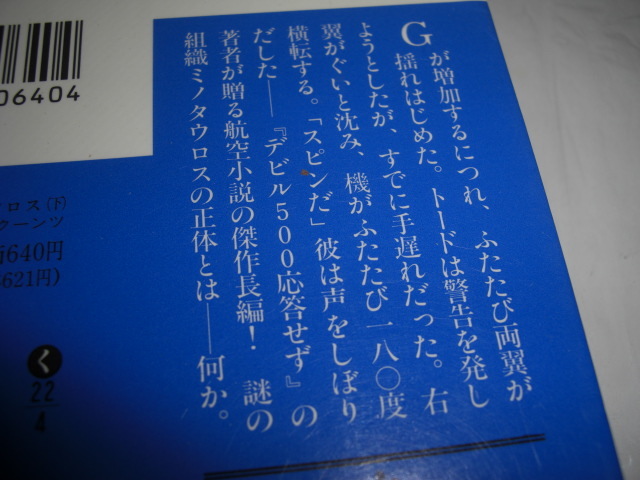 Gが増加するにつれ、ふたたび両翼が
揺れはじめた。トードは警告を発し
ようとしたが、すでに手遅れだった。右
翼がぐいと沈み、機がふたたび一八〇度
横転する。「スピンだ」彼は声をしぼり
だした――『デビル500応答せず』の
著者が贈る航空小説の傑作長編！ 謎の
組織ミノタウロスの正体とは――何か。
06404
ロス(下)
クーンツ
640円
621円)
く
22
4